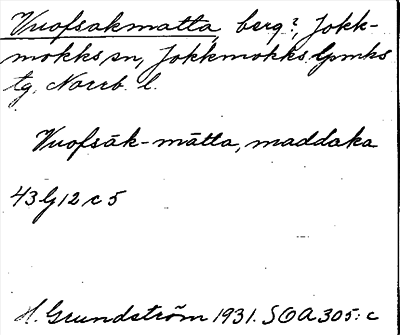 Vuofsakmatta, berg?, Jokk-
mokks sn, Jokkmokks lpmks
tg, Norrb. l.
Vuofsāk-mātta, maddaka
43 G 12 c 5
H. Grundström 1931. SOA 305: c